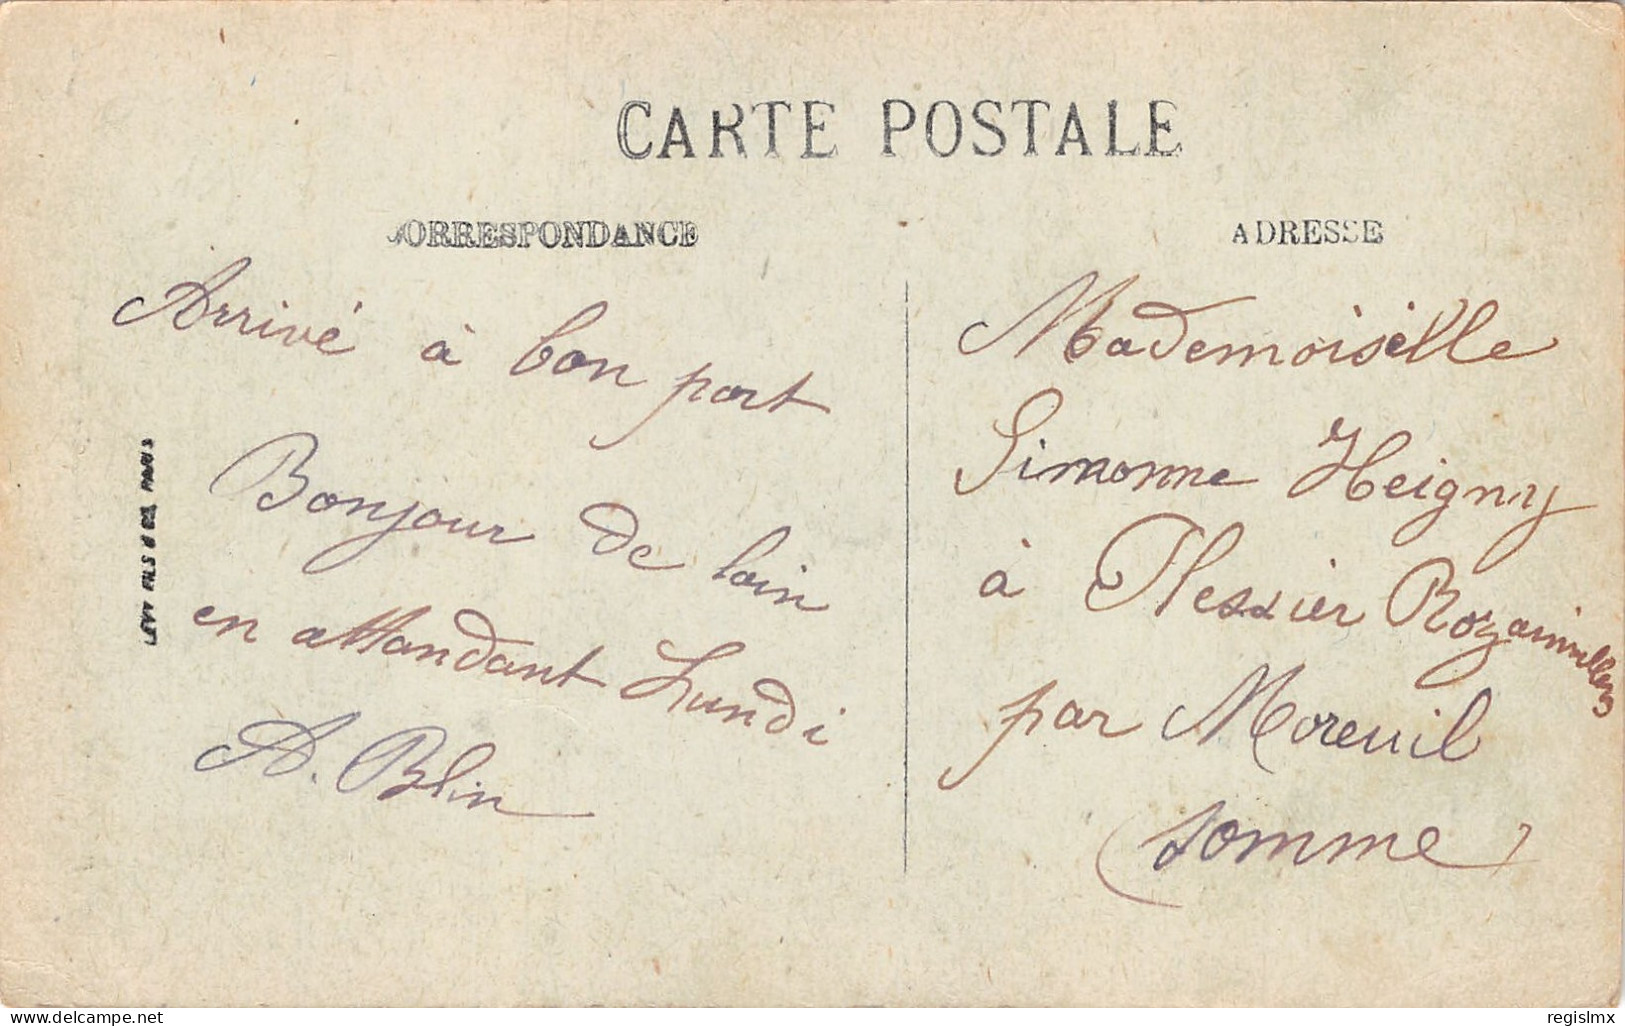 CARTE POSTALE
CORRESPONDANCE
ADRESSE
Arrivé à bon port
Bonjour de loin
en attandant Lundi
A. Blin
Mademoiselle
Simonne Heigny
à Plessier Rozainvillers
par Moreuil
(Somme)
LEVY FILS & Cie, PARIS
www.delcampe.net
regislmx